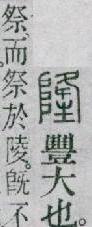 隆豐大也。
祭。而祭於陵。既不